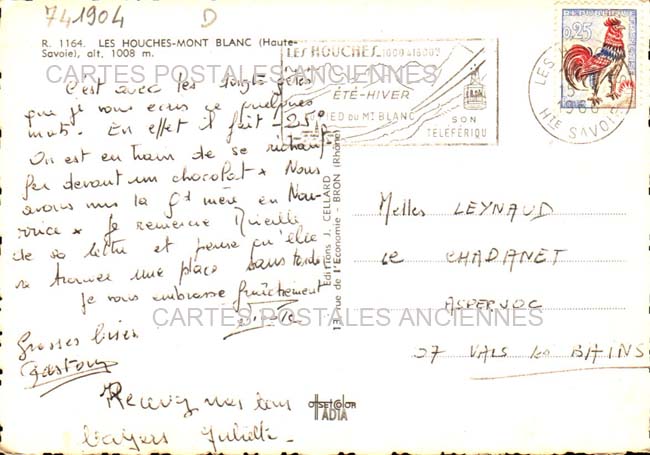 741904 D
R. 1164. LES HOUCHES-MONT BLANC (Haute-
Savoie), alt. 1008 m.
CARTES POSTALES ANCIENNES
C'est avec les doigts gelés
que je vous écris ces quelques
mots. En effet il fait -25°
On est en train de se réchauf-
fer devant un chocolat. Nous
avons mis la Gd mère en Nou-
rrice. Je remercie Mireille
de sa lettre et pense qu'elle
trouver une place sans tarder
je vous embrasse fraîchement
Grosses bises
Gaston
Recevez nos bons
baisers Juliette
LES HOUCHES 1000 à 1800m
ÉTÉ-HIVER
PIED DU MT BLANC
SON
TÉLÉFÉRIQUE
0,25
LES
HTE SAVOIE
Editions J. CELLARD
13, rue de l'Economie - BRON (Rhône)
Melles LEYNAUD
LE CHADANET
ASPERJOC
07 VALS les BAINS
CARTES POSTALES ANCIENNES
OffsetColor
IADIA